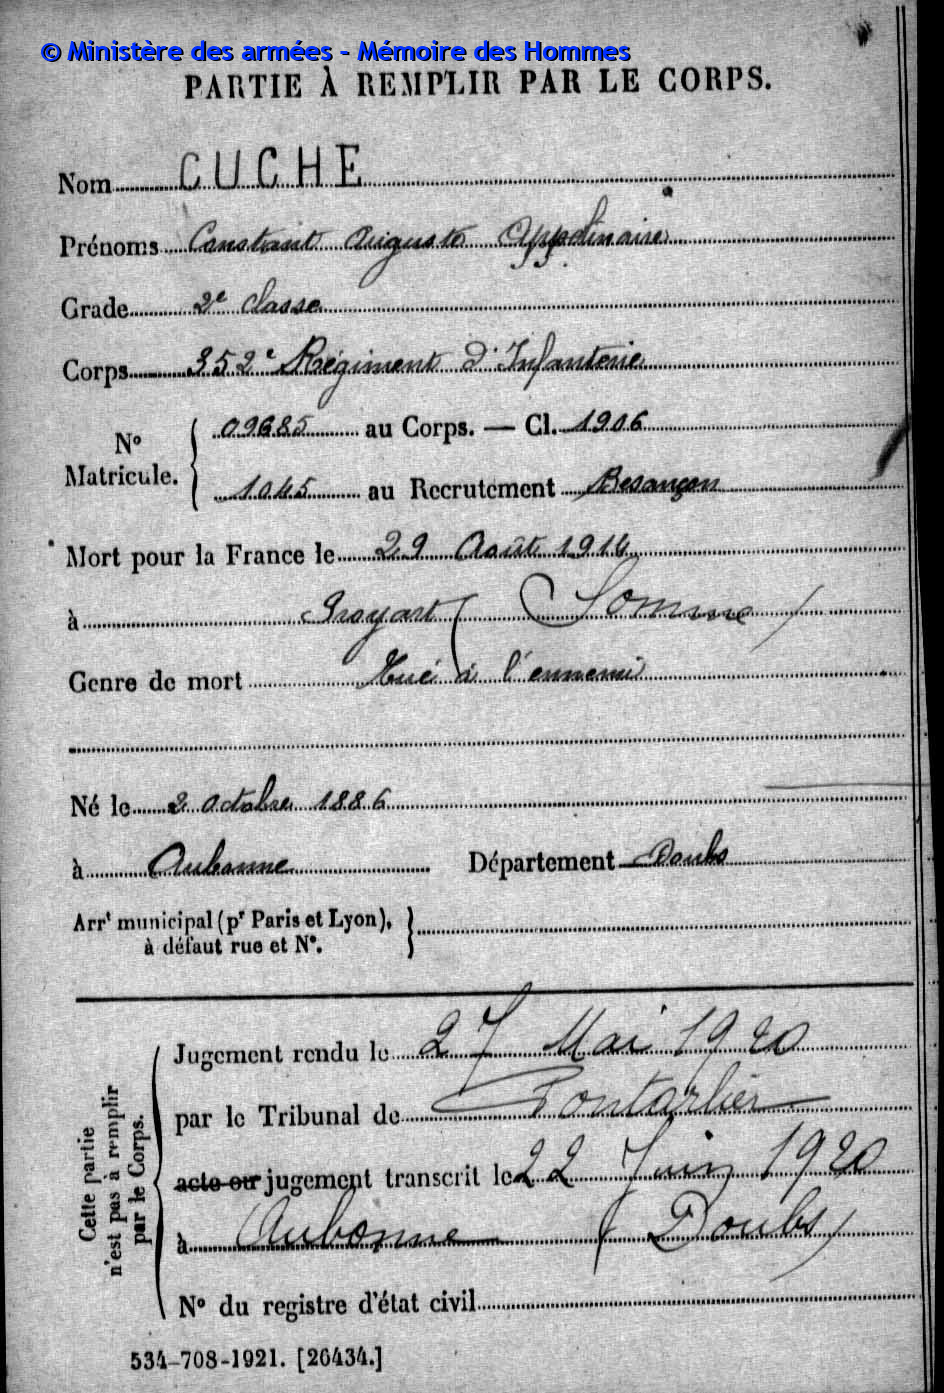 © Ministère des armées - Mémoire des Hommes
PARTIE À REMPLIR PAR LE CORPS.
Nom CUCHE
Prénoms Constant Auguste Appolinaire
Grade 2e classe
Corps 352e Régiment d'Infanterie
No Matricule. { 09685 au Corps. — Cl. 1906
1045 au Recrutement Besançon
Mort pour la France le 29 Août 1914
à Proyart (Somme)
Genre de mort Tué à l'ennemi
Né le 2 octobre 1886
à Aubonne Département Doubs
Arrt municipal (pr Paris et Lyon), }
à défaut rue et No.
Cette partie n'est pas à remplir par le Corps.
Jugement rendu le 27 Mai 1920
par le Tribunal de Pontarlier
acte ou jugement transcrit le 22 Juin 1920
à Aubonne (Doubs)
No du registre d'état civil
534-708-1921. [26434.]